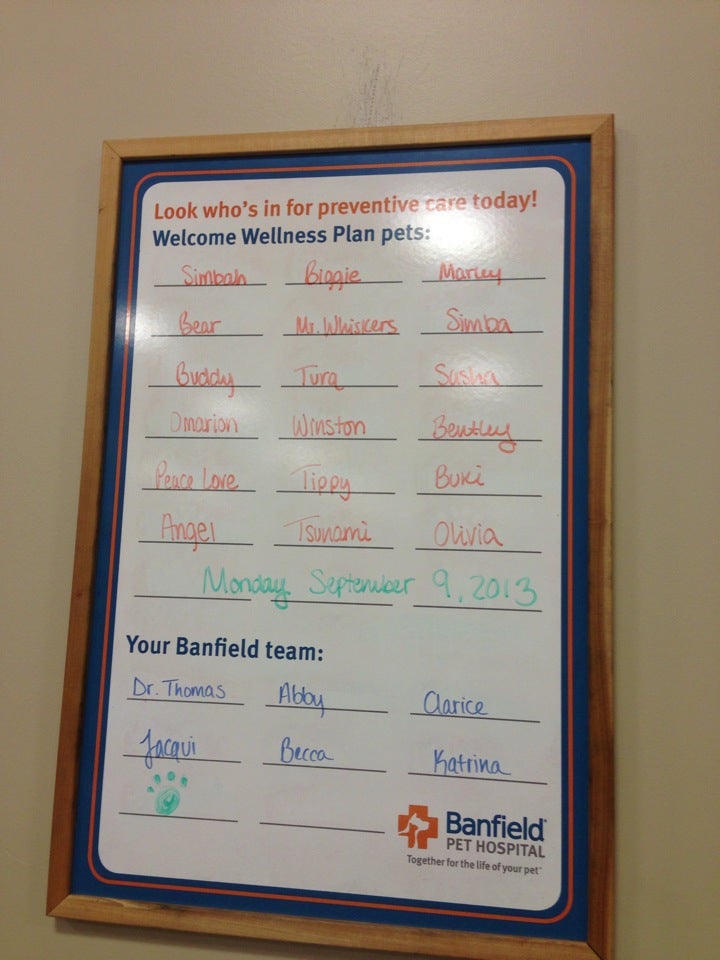 Look who's in for preventive care today!
Welcome Wellness Plan pets:
Simbah Biggie Marley
Bear Mr. Whiskers Simba
Buddy Tura Sasha
Omarion Winston Bentley
Peace Love Tippy Buki
Angel Tsunami Olivia
Monday September 9, 2013
Your Banfield team:
Dr. Thomas Abby Clarice
Jacqui Becca Katrina
Banfield
PET HOSPITAL
Together for the life of your pet